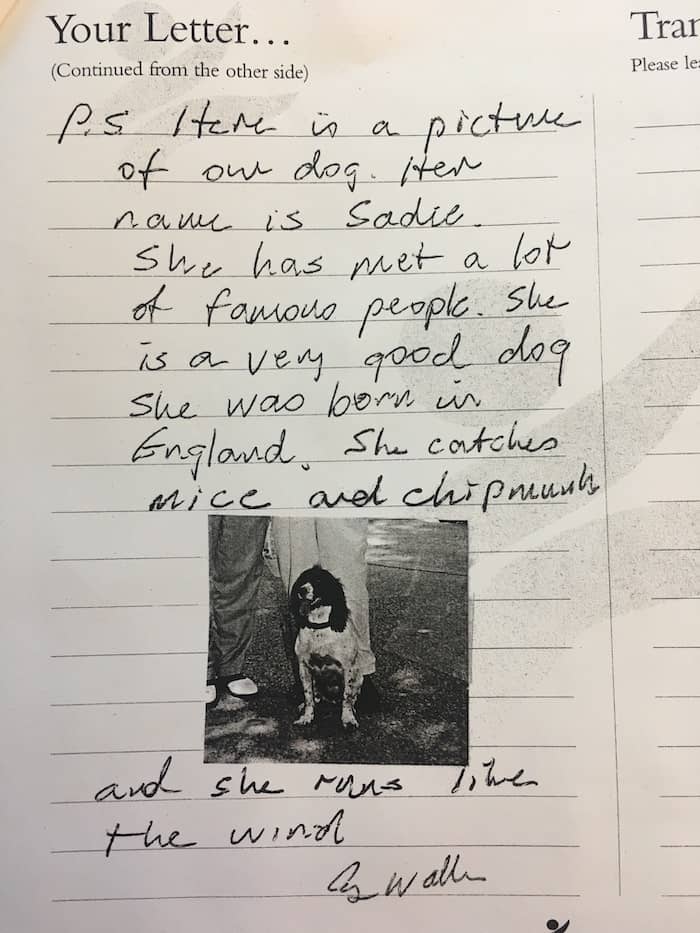 Your Letter...
(Continued from the other side)
P.S. Here is a picture
of our dog. Her
name is Sadie.
She has met a lot
of famous people. She
is a very good dog
She was born in
England. She catches
mice and chipmunks
and she runs like
the wind
G. Walker
Tran
Please lea